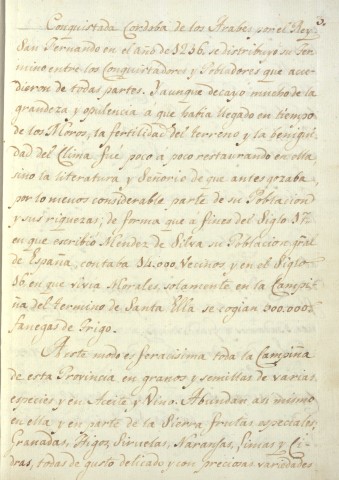 3.
Conquistada Cordoba de los Arabes por el Rey
San Fernando en el año de 1236. se distribuyo su Ter-
mino entre los Conquistadores y Pobladores que acu-
dieron de todas partes. Y aunque decayo mucho de la
grandeza y opulencia a que havia llegado en tiempo
de los Moros, la fertilidad del terreno y la benigni-
dad del Clima fué poco à poco restaurando en ella
sino la literatura y Señorio de que antes gozaba,
por lo menos considerable parte de su Poblacion
y sus riquezas; de forma que à fines del Siglo 17.
en que escribio Mendez de Silva su Poblacion gral
de España, contaba 14.000 Vecinos, y en el Siglo
16. en que vivia Morales, solamente en la Campi-
ña del termino de Santa Ella se cogian 300.000
fanegas de Trigo.
A este modo es feracisima toda la Campiña
de esta Provincia en granos y semillas de varias
especies y en Aceite y Vino. Abundan asi mismo
en ella y en parte de la Sierra frutas especiales,
Granadas, Higos, Siruelas, Naranjas, Limas y Ci-
dras, todas de gusto delicado y con preciosas variedades